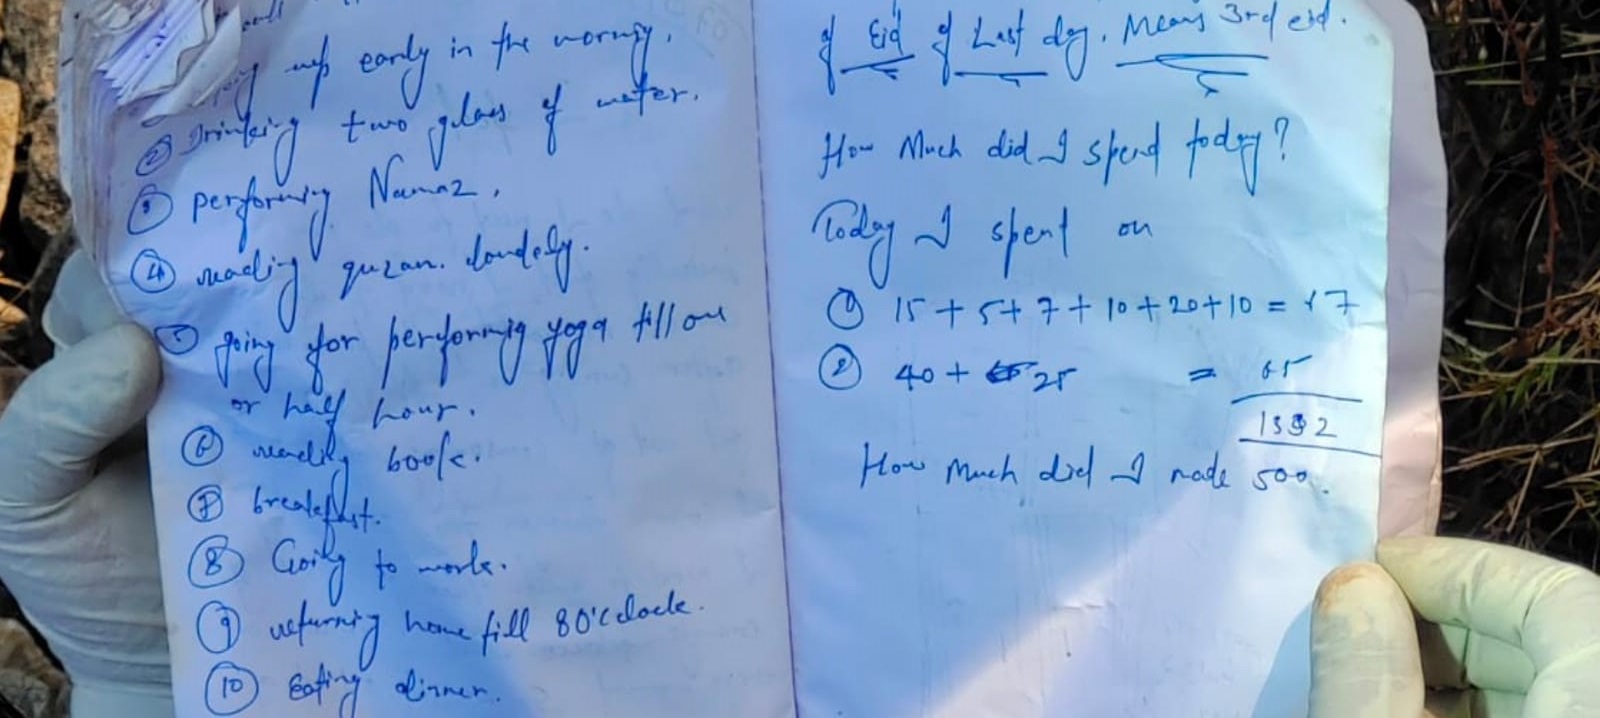 up early in the morning.
② Drinking two glass of water.
③ performing Namaz.
④ reading quran. loudely.
⑤ going for performig yoga till one
or half hour.
⑥ reading book.
⑦ breakfast.
⑧ Going to work.
⑨ returning home till 8O'clock.
⑩ Eating dinner.
of Eid of Last day. Means 3rd eid.
How Much did I spend today?
Today I spent on
① 15 + 5 + 7 + 10 + 20 + 10 = 7
② 40 + 25 = 65
How Much did I made 500.